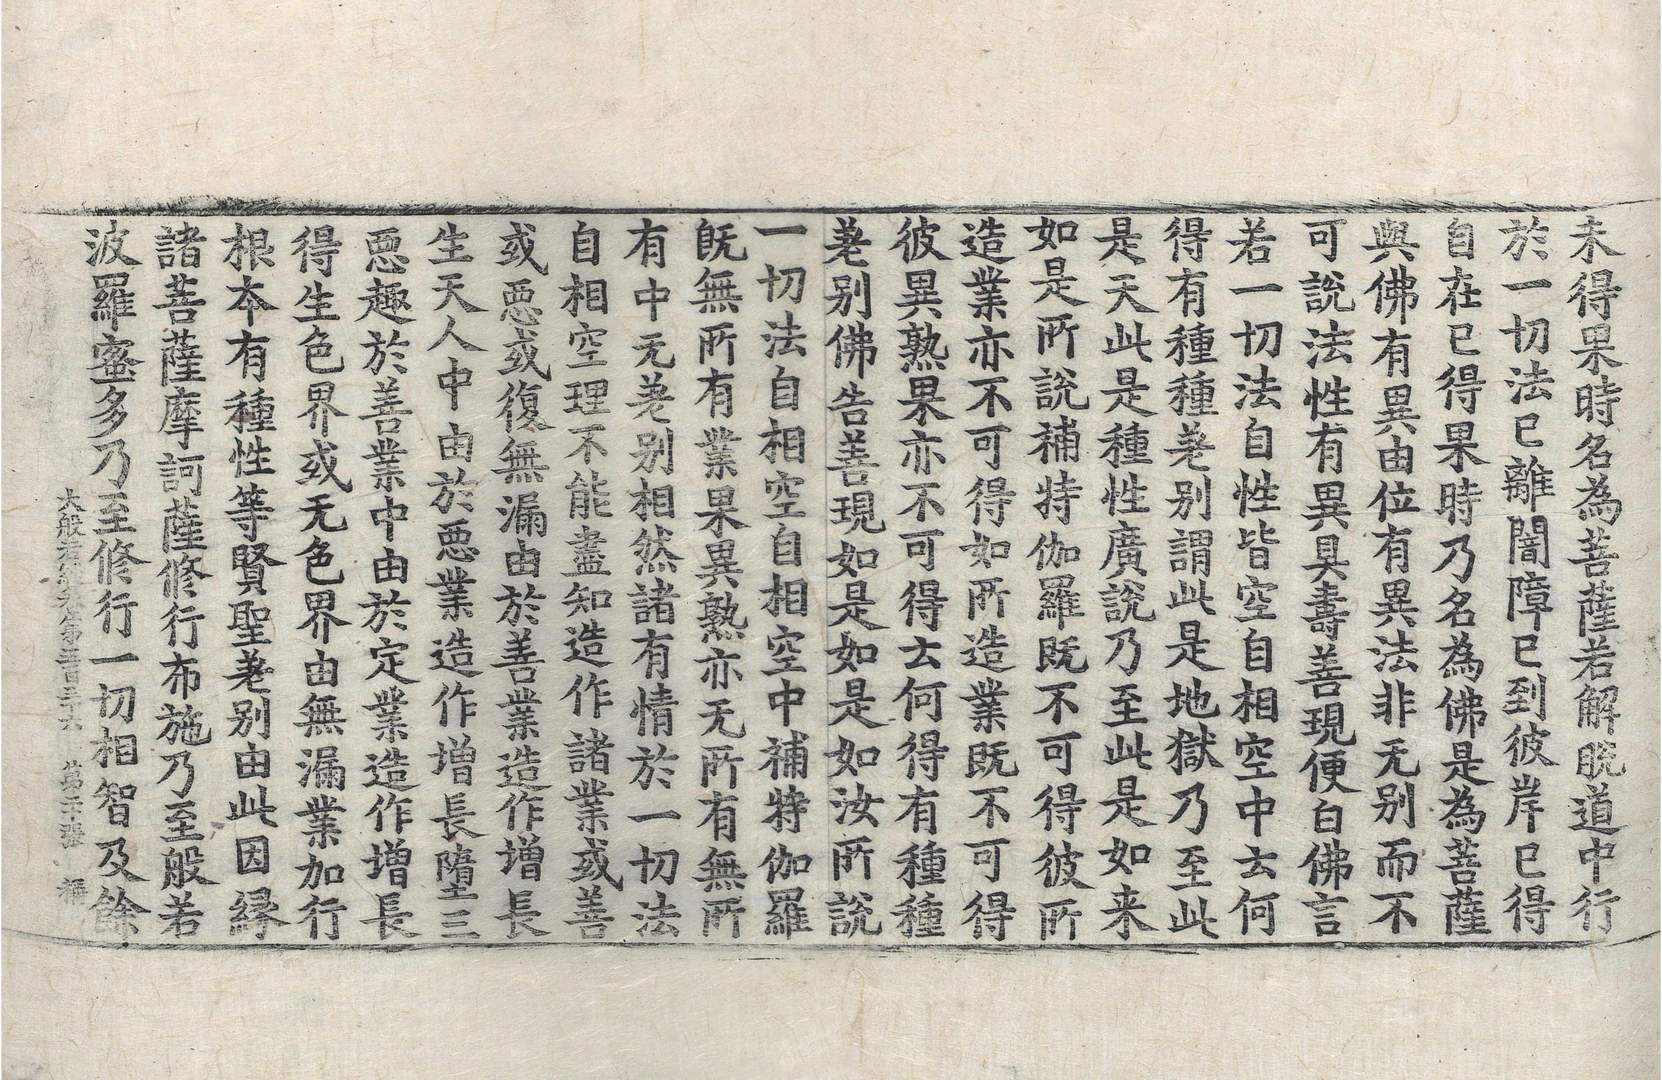 未得果時名為菩薩若解脫道中行
於一切法已離闇障已到彼岸已得
自在已得果時乃名為佛是為菩薩
與佛有異由位有異法非无別而不
可說法性有異具壽善現便白佛言
若一切法自性皆空自相空中云何
得有種種差別謂此是地獄乃至此
是天此是種性廣說乃至此是如来
如是所說補特伽羅既不可得彼所
造業亦不可得如所造業既不可得
彼異熟果亦不可得云何得有種種
差別佛告善現如是如是如汝所說
一切法自相空自相空中補特伽羅
既無所有業果異熟亦无所有無所
有中无差別相然諸有情於一切法
自相空理不能盡知造作諸業或善
或惡或復無漏由於善業造作增長
生天人中由於惡業造作增長墮三
惡趣於善業中由於定業造作增長
得生色界或无色界由無漏業加行
根本有種性等賢聖差別由此因緣
諸菩薩摩訶薩修行布施乃至般若
波羅蜜多乃至修行一切相智及餘
大般若經 第 張